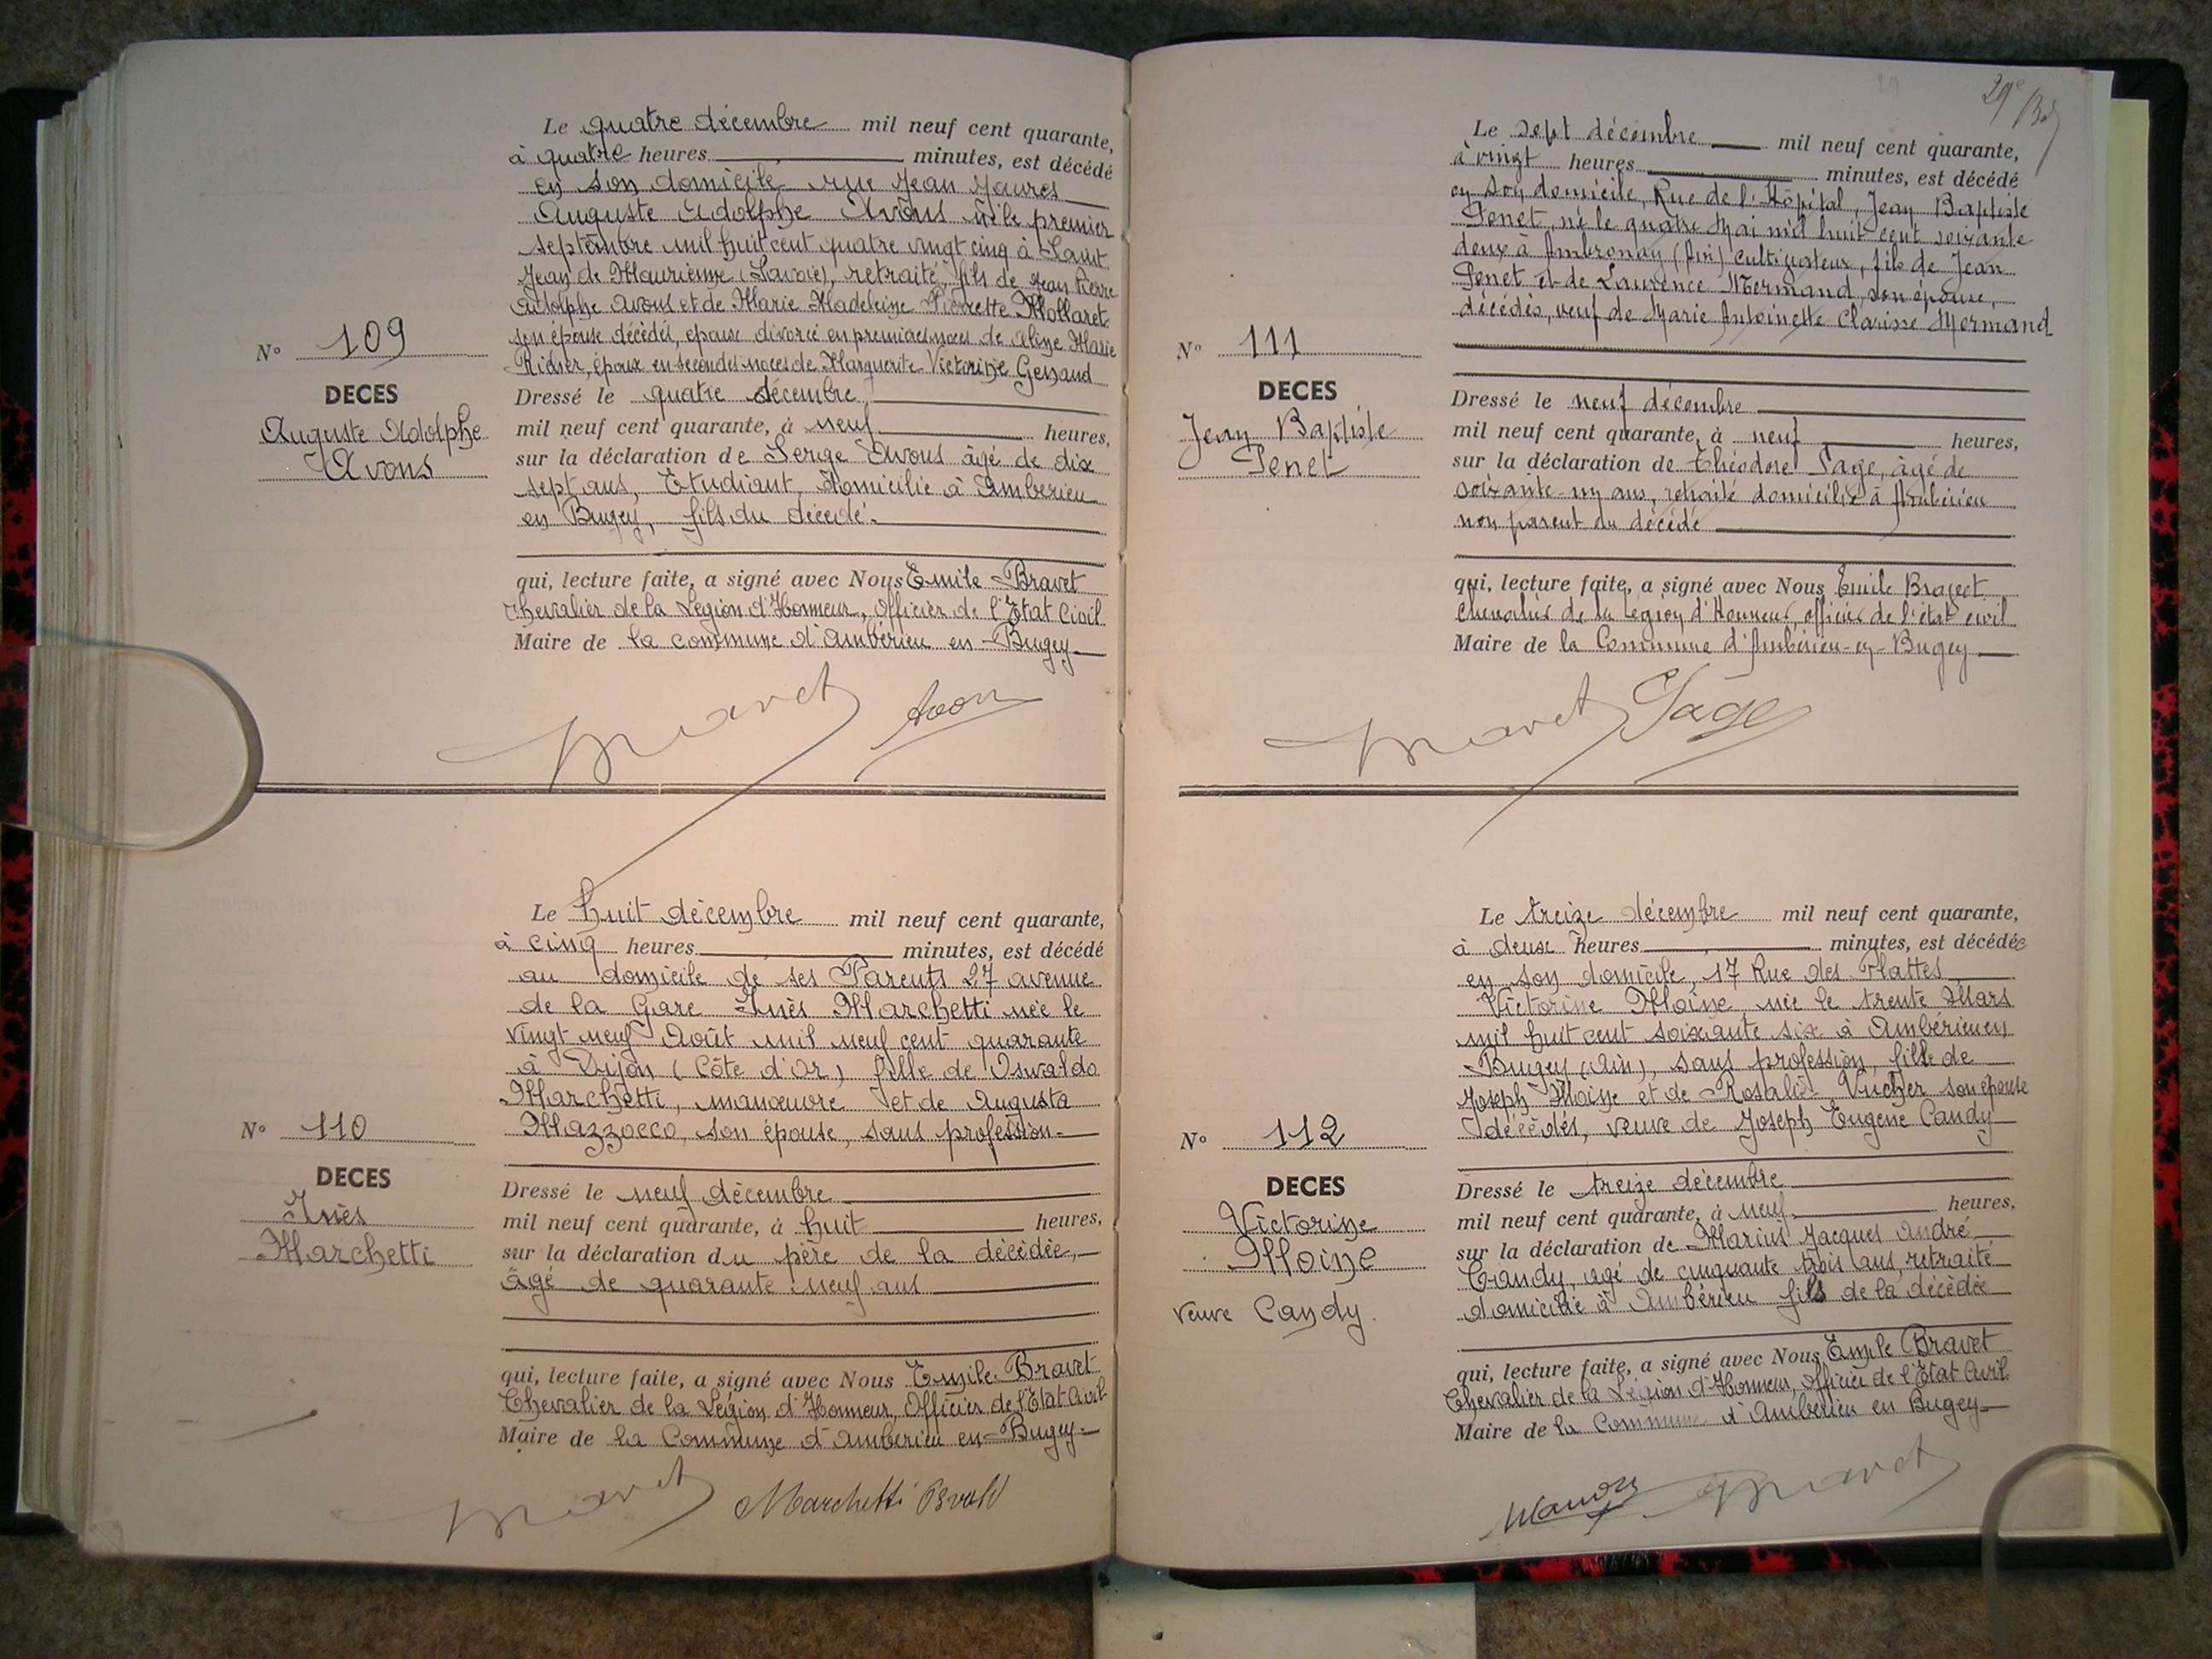 Le quatre décembre mil neuf cent quarante,
à quatre heures minutes, est décédé
en son domicile rue Jean Jaures
Auguste Adolphe Avons né le premier
septembre mil huit cent quatre vingt cinq à Saint
Jean de Maurienne (Savoie), retraité, fils de Jean Pierre
Adolphe Avons et de Marie Madeleine Pierrette Mollaret
son épouse décédés, époux divorcé en premières noces de Aline Marie
époux en secondes noces de Marguerite Victorine Genand
N° 109
DECES
Auguste Adolphe
Avons
Dressé le quatre décembre
mil neuf cent quarante, à neuf heures,
sur la déclaration de Serge Avons âgé de dix
sept ans, Etudiant, domicilié à Ambérieu
en Bugey, fils du décédé.
qui, lecture faite, a signé avec Nous Emile Bravet
Chevalier de la Légion d'Honneur, Officier de l'Etat Civil
Maire de la commune d'Ambérieu en Bugey
Bravet Avon
Le huit décembre mil neuf cent quarante,
à cinq heures minutes, est décédé
au domicile de ses Parents 27 avenue
de la Gare Inès Marchetti née le
vingt neuf Août mil neuf cent quarante
à Dijon (Côte d'Or) fille de Oswaldo
Marchetti, manœuvre et de Augusta
Mazzocco, son épouse, sans profession-
N° 110
DECES
Inès
Marchetti
Dressé le neuf décembre
mil neuf cent quarante, à huit heures,
sur la déclaration du père de la décédée,
âgé de quarante neuf ans
qui, lecture faite, a signé avec Nous Emile Bravet
Chevalier de la Légion d'Honneur, Officier de l'Etat Civil
Maire de la Commune d'Ambérieu en-Bugey-
Bravet Marchetti Osvald
29e
Le sept décembre mil neuf cent quarante,
à vingt heures minutes, est décédé
en son domicile, Rue de l'Hôpital, Jean Baptiste
Penet, né le quatre Mai mil huit cent soixante
deux à Ambronay (Ain) cultivateur, fils de Jean
Penet et de Laurence Mermand, son épouse,
décédés, veuf de Marie Antoinette Clarisse Mermand
N° 111
DECES
Jean Baptiste
Penet
Dressé le neuf décembre
mil neuf cent quarante, à neuf heures,
sur la déclaration de Théodore Sage, âgé de
soixante-un ans, retraité domicilié à Ambérieu
non parent du décédé
qui, lecture faite, a signé avec Nous Emile Bravet
Chevalier de la Légion d'Honneur, officier de l'état civil
Maire de la Commune d'Ambérieu-en-Bugey
Bravet Sage
Le treize décembre mil neuf cent quarante,
à deux heures minutes, est décédée
en son domicile, 17 Rue des Plattes
Victorine Moine née le trente Mars
mil huit cent soixante six à Ambérieu en
Bugey (Ain), sans profession, fille de
Joseph Moine et de Rosalie Vucher son épouse
décédés, veuve de Joseph Eugène Candy
N° 112
DECES
Victorine
Moine
veuve Candy.
Dressé le treize décembre
mil neuf cent quarante, à neuf heures,
sur la déclaration de Marius Jacques André
Candy, âgé de cinquante trois ans, retraité
domicilié à Ambérieu fils de la décédée
qui, lecture faite, a signé avec Nous Emile Bravet
Chevalier de la Légion d'Honneur, Officier de l'Etat Civil
Maire de la Commune d'Ambérieu en Bugey
Bravet